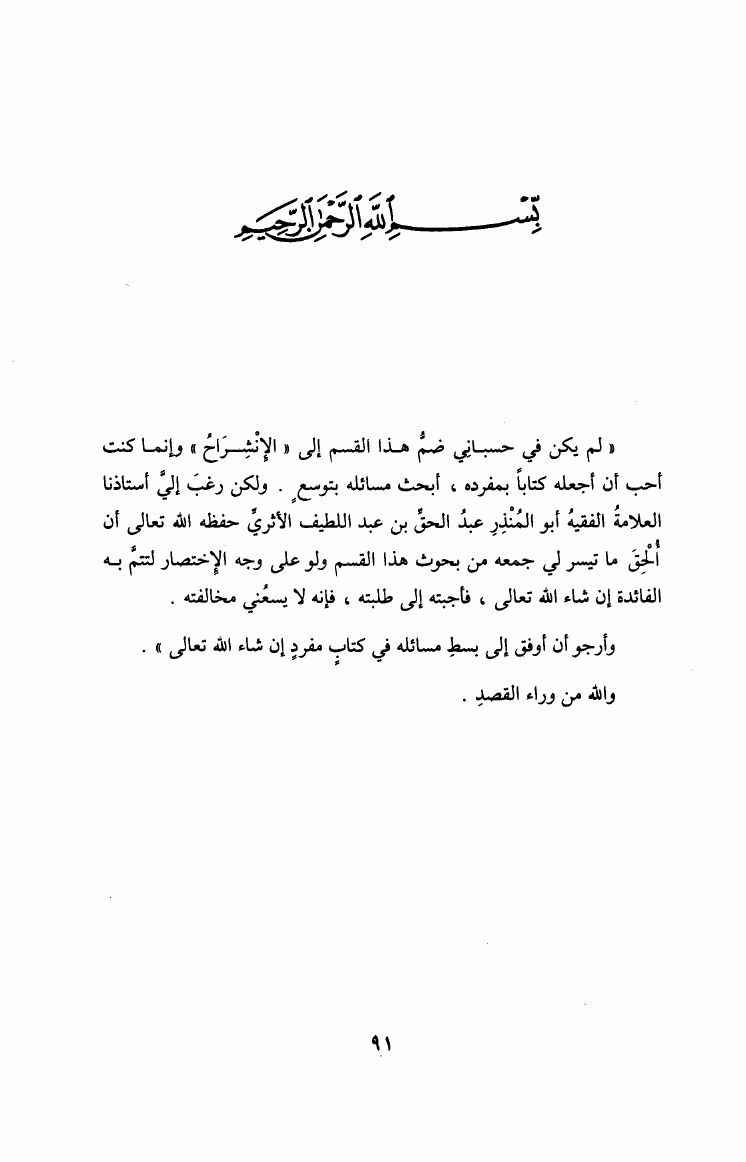 بِسْمِ اللَّهِ الرَّحْمَٰنِ الرَّحِيمِ
« لم يكن في حسباني ضمُّ هذا القسم إلى « الإنْشِرَاحُ » وإنما كنت
أحب أن أجعله كتاباً بمفرده ، أبحث مسائله بتوسعٍ . ولكن رغبَ إليَّ أستاذنا
العلامةُ الفقيهُ أبو المُنْذِرِ عبدُ الحقِّ بن عبد اللطيف الأثريِّ حفظه الله تعالى أن
أُلْحِقَ ما تيسر لي جمعه من بحوث هذا القسم ولو على وجه الإختصار لتتمَّ به
الفائدة إن شاء الله تعالى ، فأجبته إلى طلبته ، فإنه لا يسعُني مخالفته .
وأرجو أن أوفق إلى بسطِ مسائله في كتابٍ مفردٍ إن شاء الله تعالى » .
والله من وراء القصدِ .
٩١